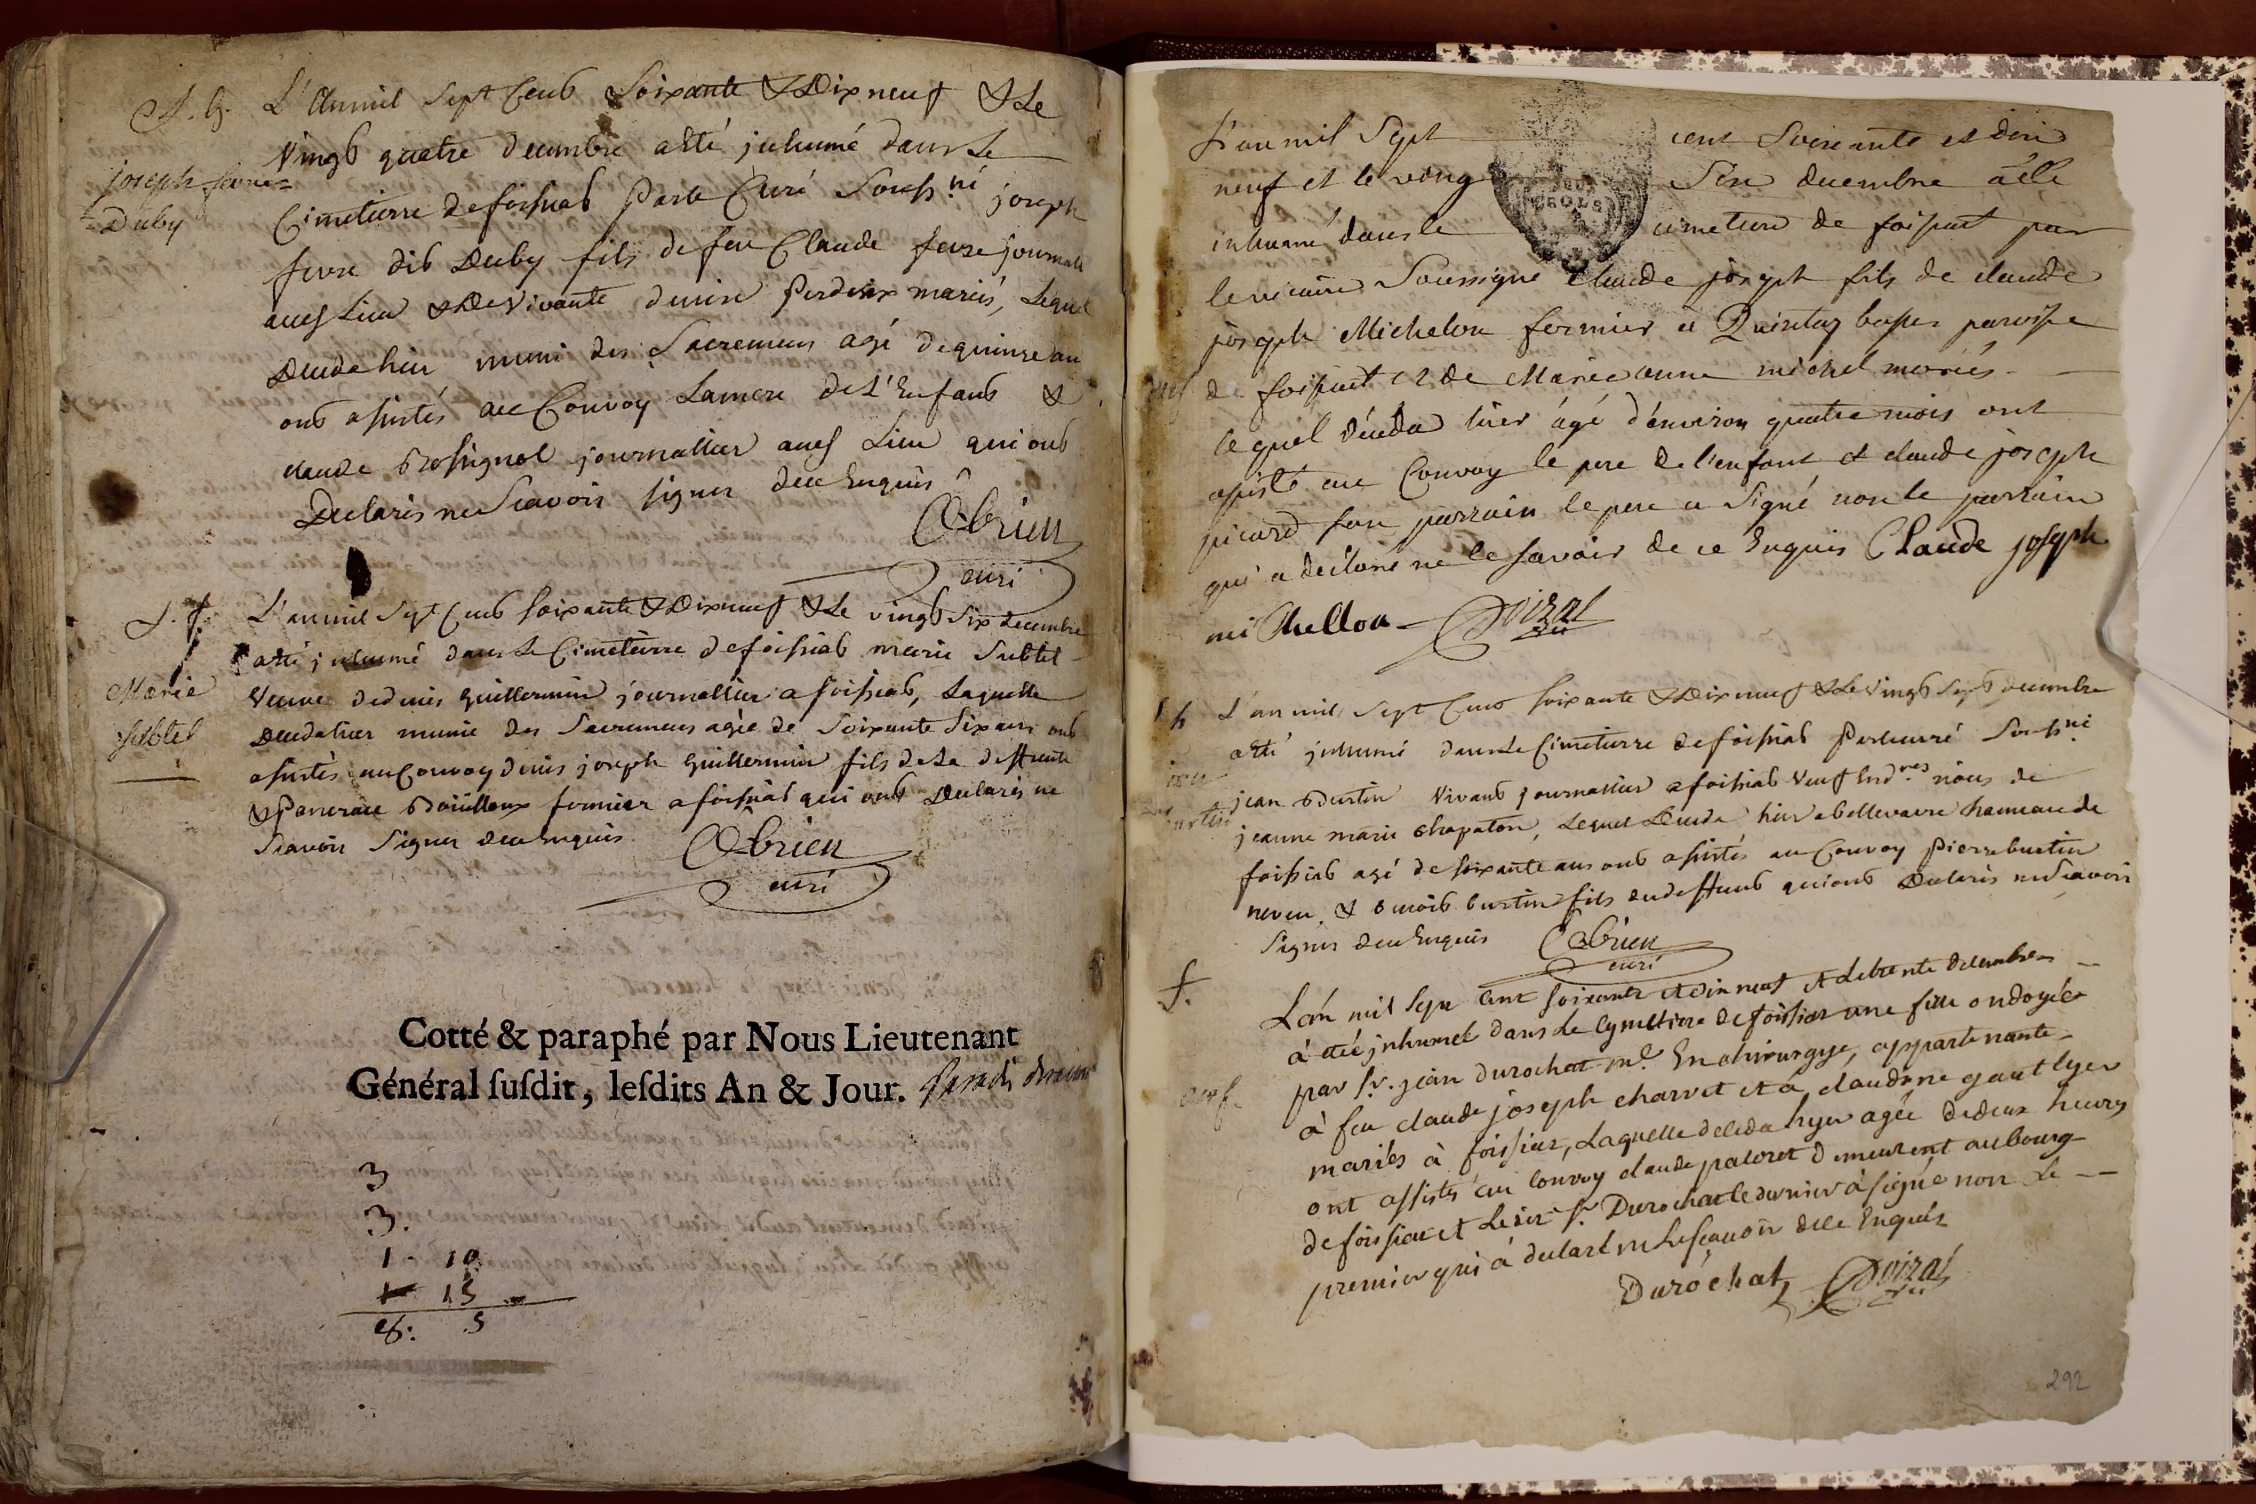 S. h.
joseph fevre
Duby
L'Anmil Sept Cents Soixante & Dix neuf & Le
Vingt quatre decembre aété inhumé dans Le
Cimetierre de foissiat Par le Curé Souss.né joseph
fevre dit Duby fils de feu Claude fevre journalier
aud Lieu & De Vivante Perdrix mariés, Lequel
Décéda hier muni des Sacremens agé de quinze an
ont assistés au Convoy La mere de L'Enfant &
claude Rossignol journallier aud Lieu qui ont
Declarés ne Scavoir signer dece Enquis
Obrien
curé
S. f.
Marie
Subtel
L'an mil Sept Cents soixante & Dix neuf & Le vingt Six decembre
aété inhumé dans Le Cimetierre de foissiat marie Subtel
Veuve de denis guillermin journallier a foissiat, Laquelle
Décéda hier munie des Sacremens agée de Soixante Six ans ont
assistés au Convoy denis joseph guillermin fils de La deffunte
& Pancrace fermier a foissiat qui ont Declarés ne
Scavoir Signer dece Enquis
Obrien
curé
Cotté & paraphé par Nous Lieutenant
Général ſuſdit, leſdits An & Jour.
3
3.
1. 10.
1 15
8. 5
L'an mil Sept cent Soixante et dix
neuf et le vingt Six decembre a été
inhumé dans le cimetiere de foissiat par
le vicaire Soussigné Claude joseph fils de claude
joseph Michelon fermier à Quintaz basse paroisse
de foissiat et de Marie anne michel mariés
lequel décéda hier âgé d'environ quatre mois ont
assisté au Convoy le pere de l'enfant et claude joseph
picard son parrain le pere a Signé non le parrain
qui a déclaré ne le savoir de ce Enquis Claude joseph
mi Chellon
S. h
L'an mil Sept Cents soixante & Dix neuf & Le Vingt Sept decembre
aété inhumé dans Le Cimetierre de foissiat Par le curé Souss.né
jean Burtin Vivant journallier a foissiat Veuf de
jeanne marie Chapaton, Lequel Décéda hier a bellevavre hameau de
foissiat agé de soixante ans ont assistés au Convoy Pierre burtin
neveu & benoit burtin fils du deffunt qui ont Declarés ne Scavoir
Signer dece Enquis
Obrien
curé
f.
L'an mil Sept Cent soixante et dix neuf et Le trente decembre
à eté inhumée dans Le Cymetiere de foissiat une fille ondoyée
par Sr. jean Durochat m.e En chirurgye, appartenante
à feu claude joseph charvet et à claudine gautlyer
mariés à foissiat, Laquelle deceda hyer agée de deux heures
ont assistés au Convoy claude paloret demeurent au bourg
de foissiat et Le Sr Durochat le dernier à signé non Le
premier qui à declaré ne Le scavoir dece Enquis
Durochat
292